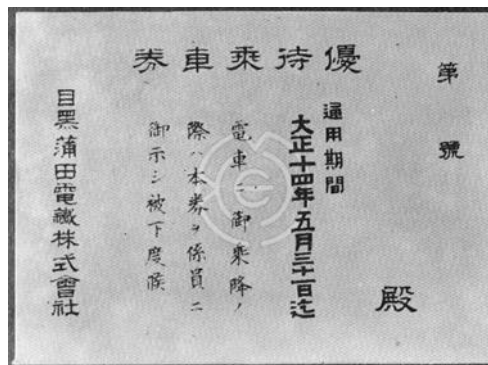 優待乗車券
第　號
殿
通用期間
大正十四年五月三十一日迄
電車ニ御乗降ノ
際ハ本券ヲ係員ニ
御示シ被下度候
目黒蒲田電鐵株式會社